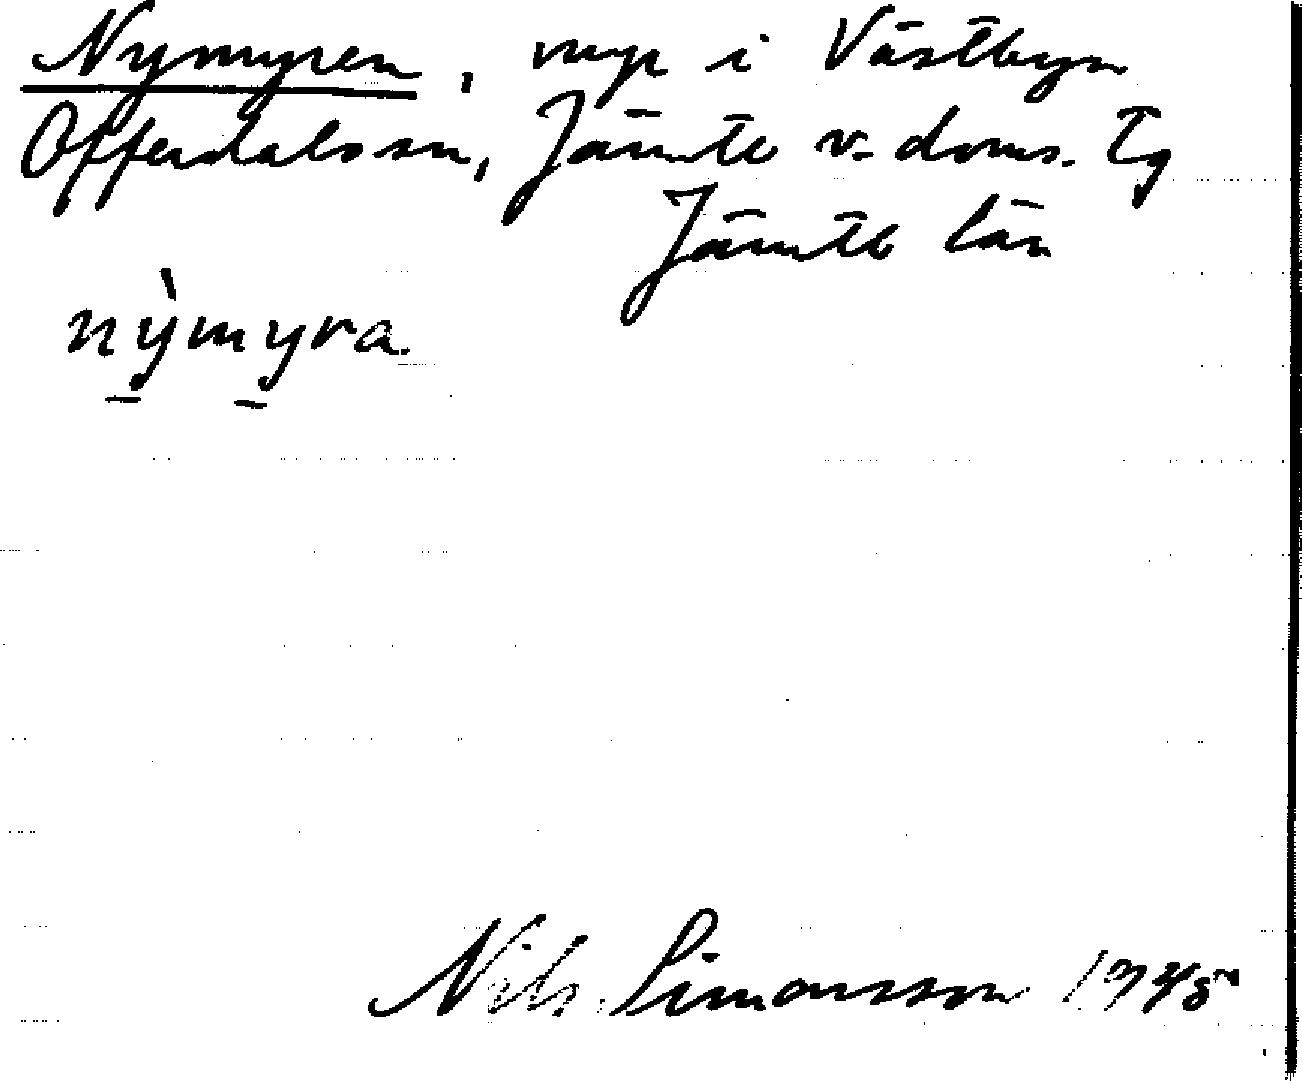 Nymyren, myr i Västbyn
Offerdals sn, Jämtl. v. doms. Tg
Jämtl. län
nỳmyra.
Nils Simonsson 1945